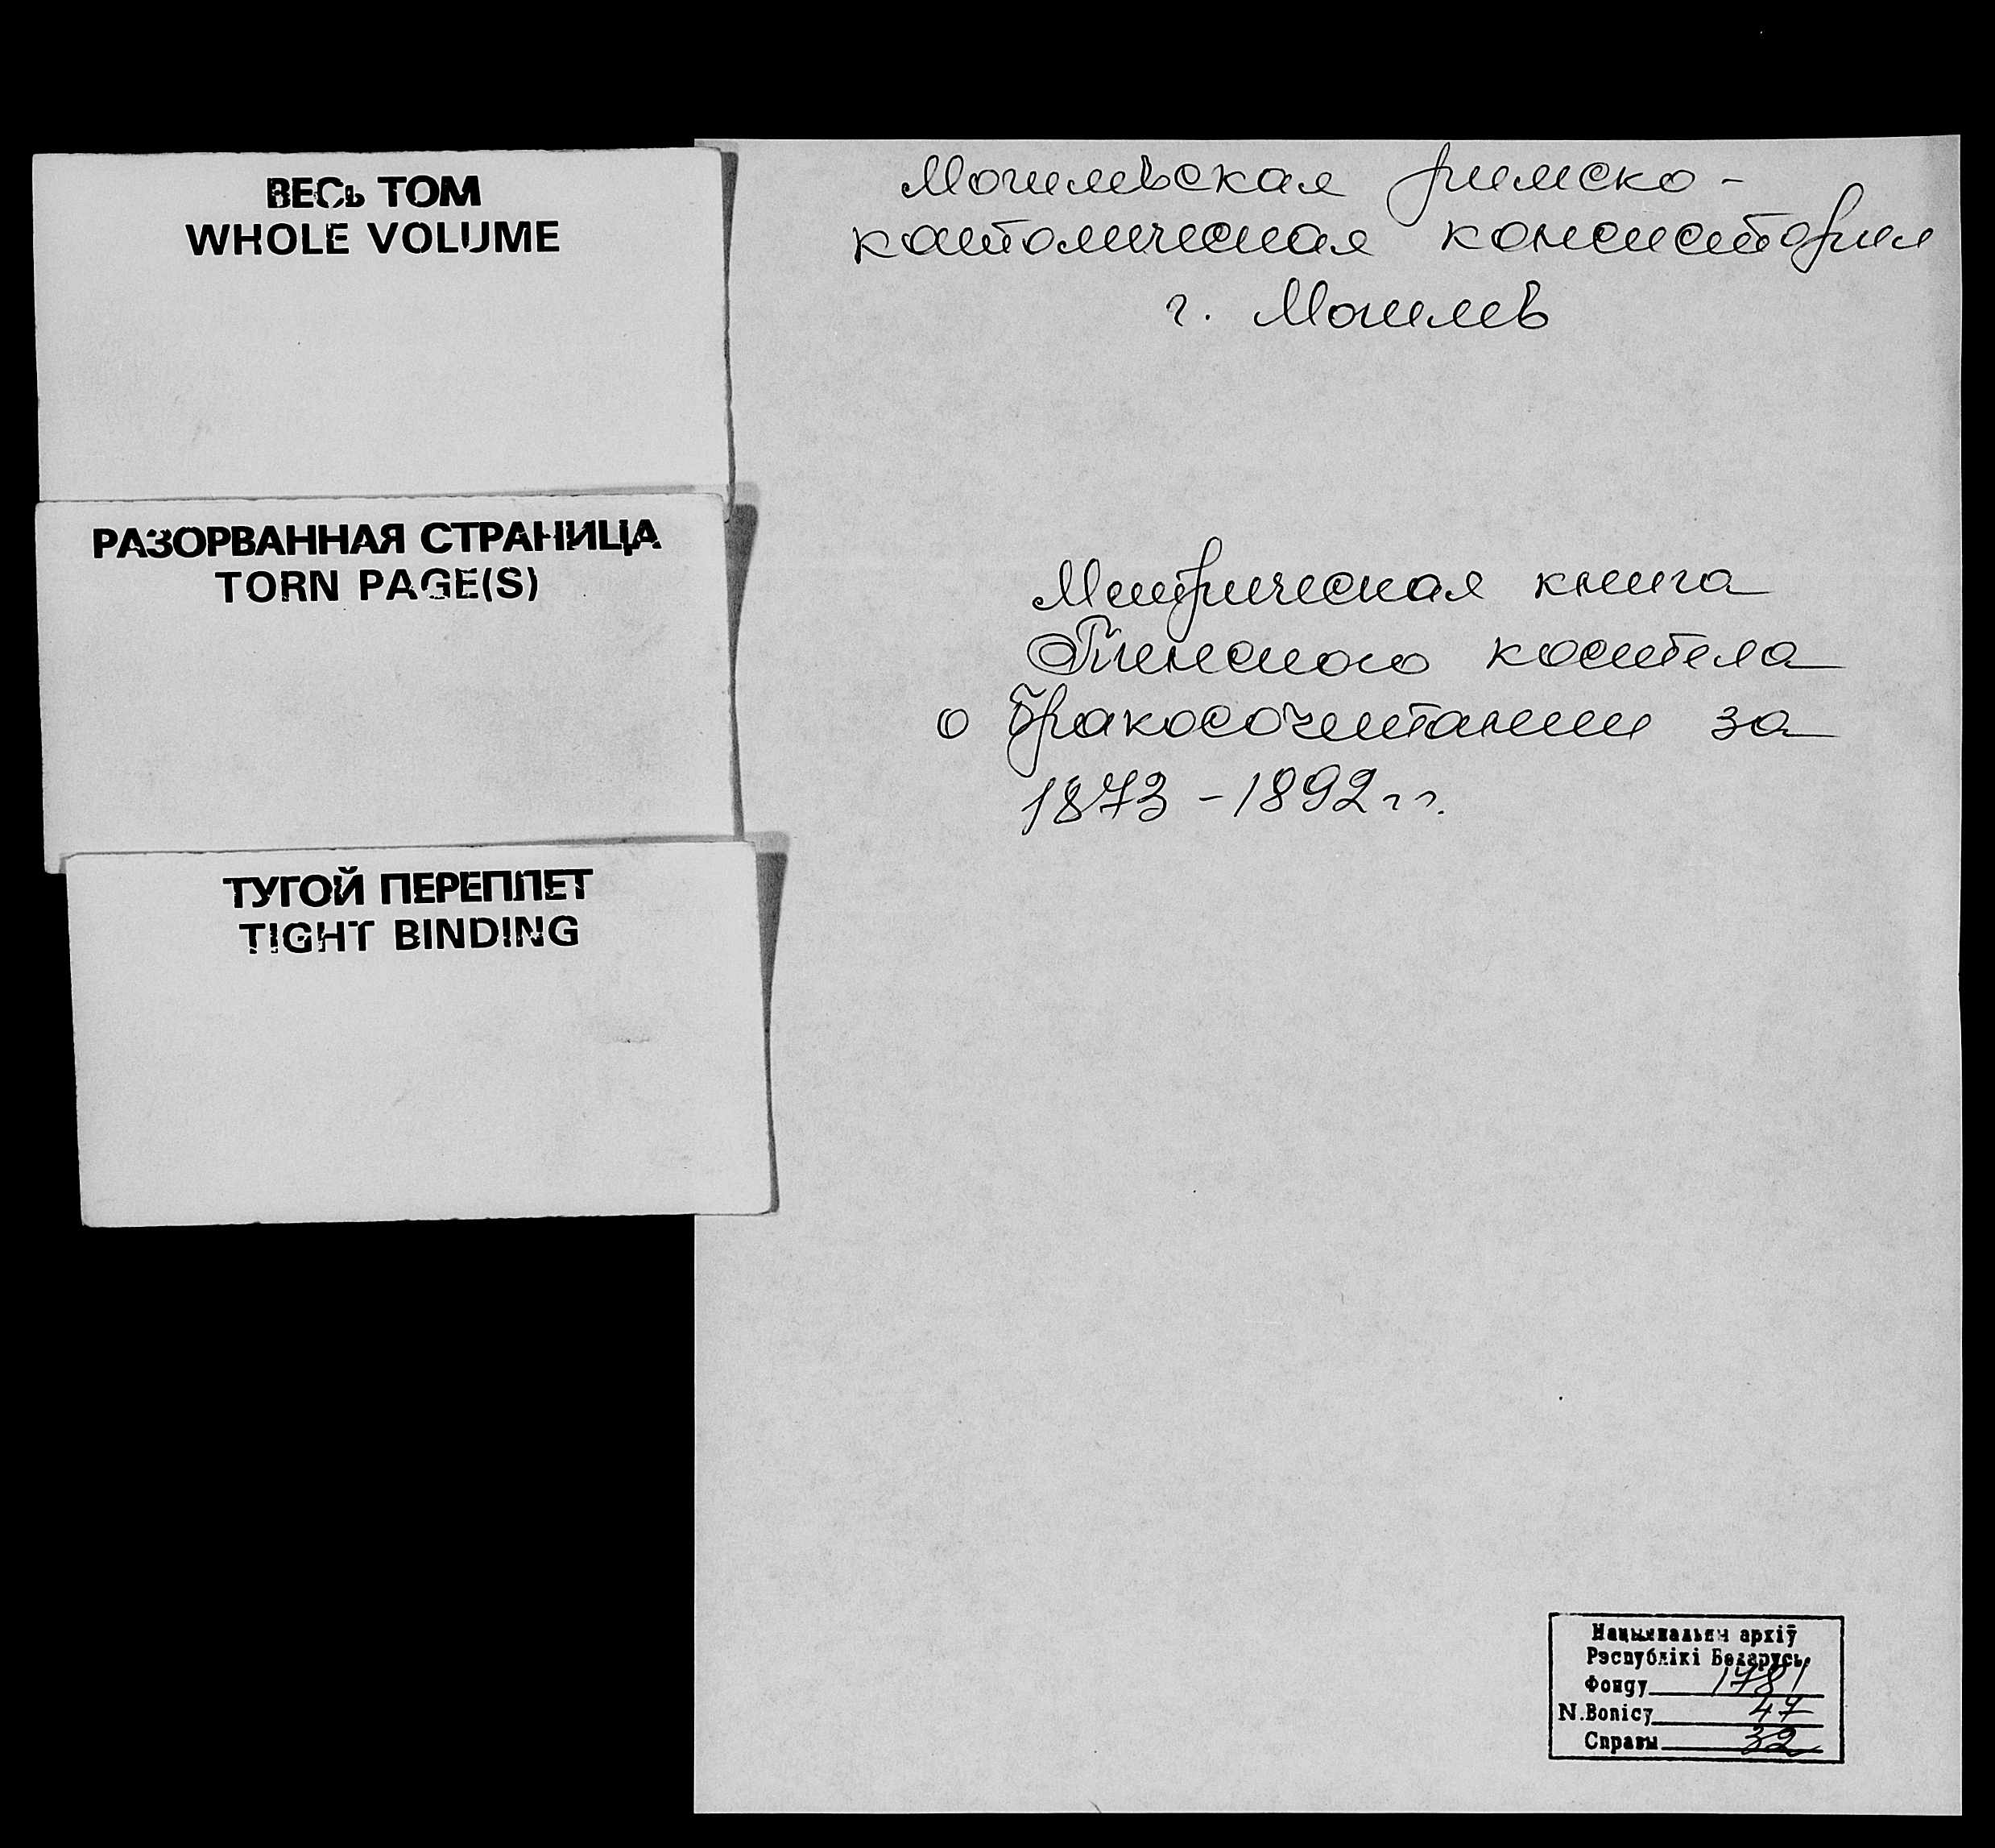 ВЕСЬ ТОМ
WHOLE VOLUME
РАЗОРВАННАЯ СТРАНИЦА
TORN PAGE(S)
ТУГОЙ ПЕРЕПЛЕТ
TIGHT BINDING
Могилевская римско-
католическая консистория
г. Могилев
Метрическая книга
Пинского костела
о бракосочетании за
1873-1892 гг.
Нацыянальны архіў
Рэспублікі Беларусь
Фонду 1781
N.Вопісу 47
Справы 32